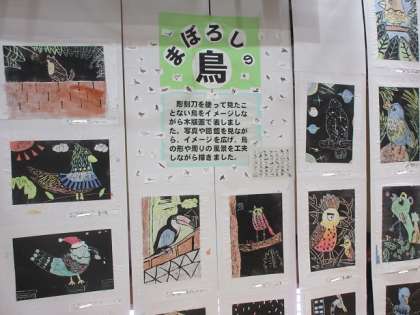 まぼろしの
鳥
彫刻刀を使って見たこ
とない鳥をイメージしな
がら木版画で表しまし
た。写真や図鑑を見なが
ら、イメージを広げ、鳥
の形や周りの風景を工夫
しながら描きました。